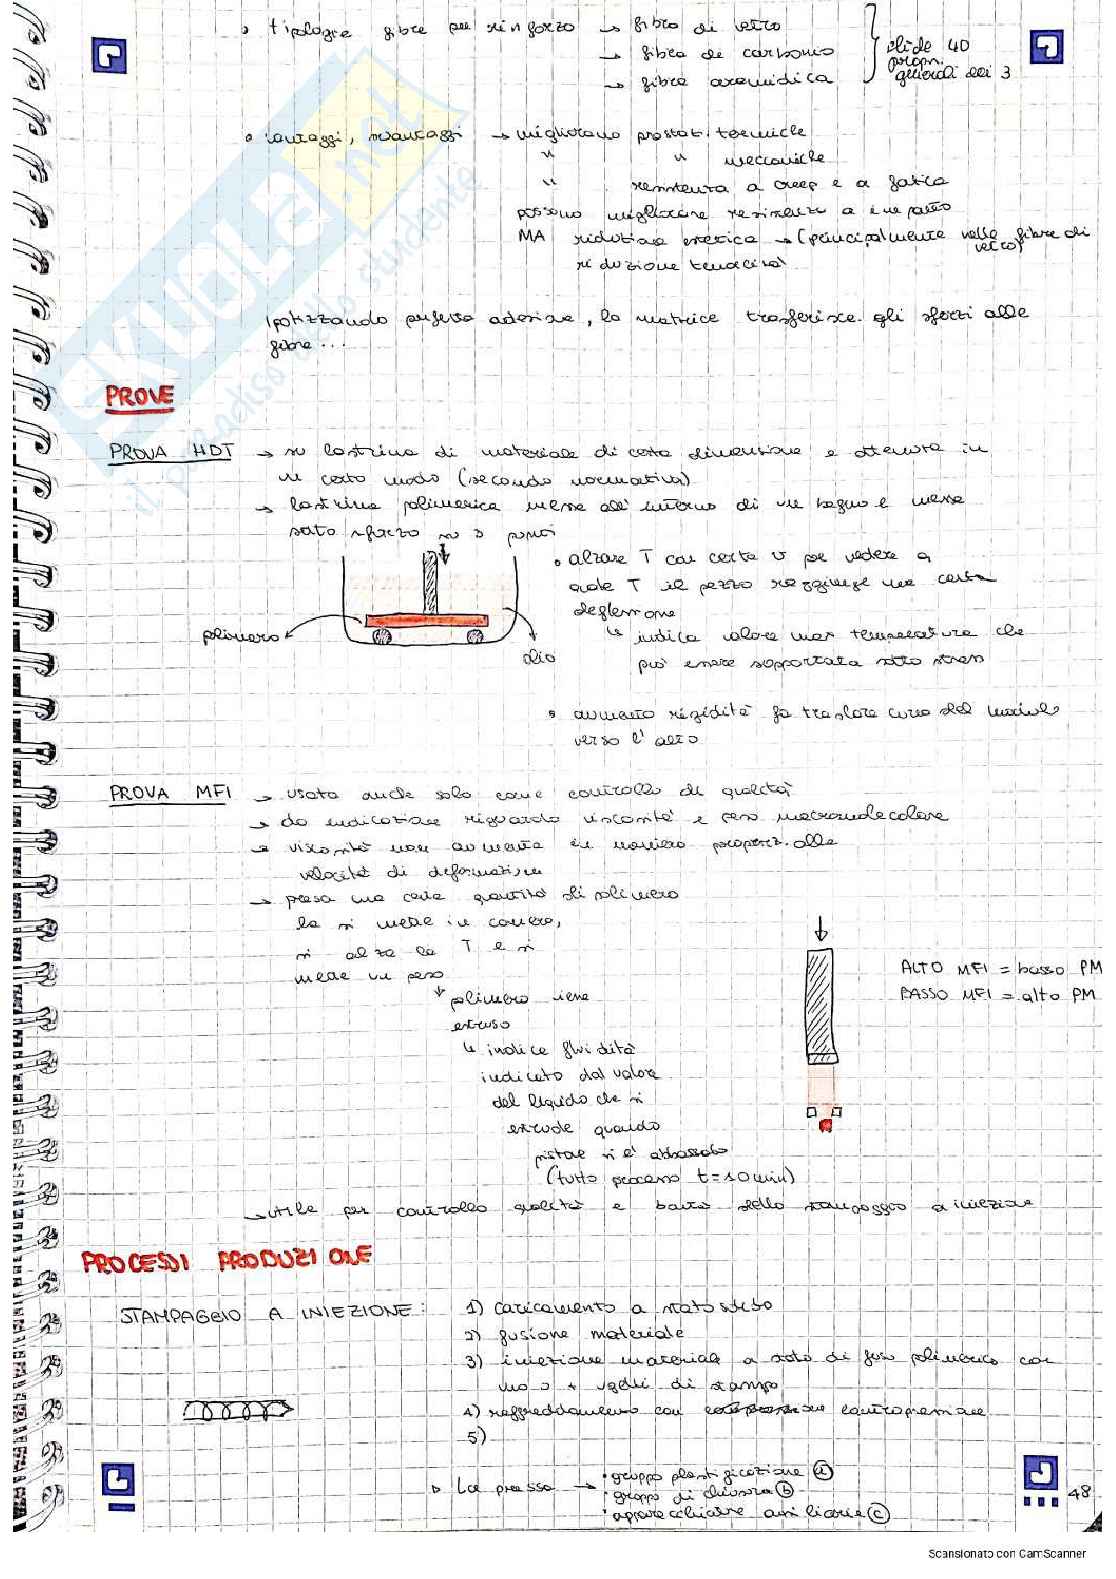 • tipologie fibre per rinforzo → fibra di vetro
→ fibra di carbonio
→ fibra aramidica
slide 40
propri.
generali dei 3
• vantaggi, svantaggi → migliorano prestaz. termiche
" " meccaniche
" resistenza a creep e a fatica
possono migliorare resistenza a impatto
MA riduzione estetica → (principalmente nelle fibre di vetro)
riduzione tenacità
Ipotizzando perfetta adesione, la matrice trasferisce gli sforzi alle
fibre...
PROVE
PROVA HDT → su lastrina di materiale di certa dimensione e ottenuta in
un certo modo (secondo normativa)
→ lastrina polimerica messa all'interno di un bagno e messa
sotto sforzo su 3 punti
polimero
olio
• alzare T con certa v per vedere a
quale T il pezzo raggiunge una certa
deflessione
↳ indica valore max temperatura che
può essere sopportata sotto stress
• aumento rigidità fa traslare curva del modulo
verso l'alto
PROVA MFI → usata anche solo come controllo di qualità
→ dà indicazione riguardo viscosità e peso macromolecolare
→ viscosità non aumenta in maniera proporz. alla
velocità di deformazione
→ presa una certa quantità di polimero
la si mette in camera,
si alza la T e si
mette un peso
↓ polimero viene
estruso
↳ indice fluidità
indicato dal valore
del liquido che si
estrude quando
pistone si è abbassato
(tutto processo t=10min)
ALTO MFI = basso PM
BASSO MFI = alto PM
→ utile per controllo qualità e banco dello stampaggio a iniezione
PROCESSI PRODUZIONE
STAMPAGGIO A INIEZIONE: 1) caricamento a stato solido
2) fusione materiale
3) iniezione materiale a stato di fuso polimerico con
uno o + ugelli di stampo
4) raffreddamento con contropressione
5)
• La pressa → • gruppo plastificazione (a)
• gruppo di chiusura (b)
• apparecchiature ausiliarie (c)
48
Scansionato con CamScanner
SKUOLA.net
il paradiso dello studente